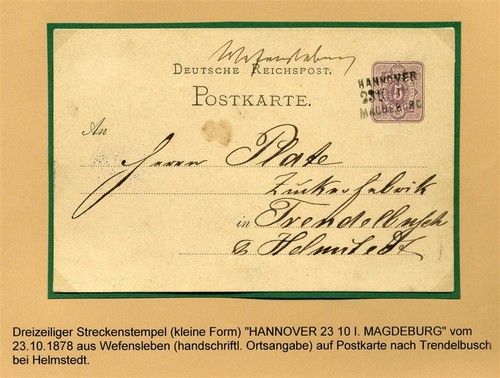 Wefensleben
DEUTSCHE REICHSPOST.
HANNOVER
23 10 I
MAGDEBURG
POSTKARTE.
An
Herrn Plate
Zuckerfabrik
in Trendelbusch
b Helmstedt
Dreizeiliger Streckenstempel (kleine Form) "HANNOVER 23 10 I. MAGDEBURG" vom
23.10.1878 aus Wefensleben (handschriftl. Ortsangabe) auf Postkarte nach Trendelbusch
bei Helmstedt.